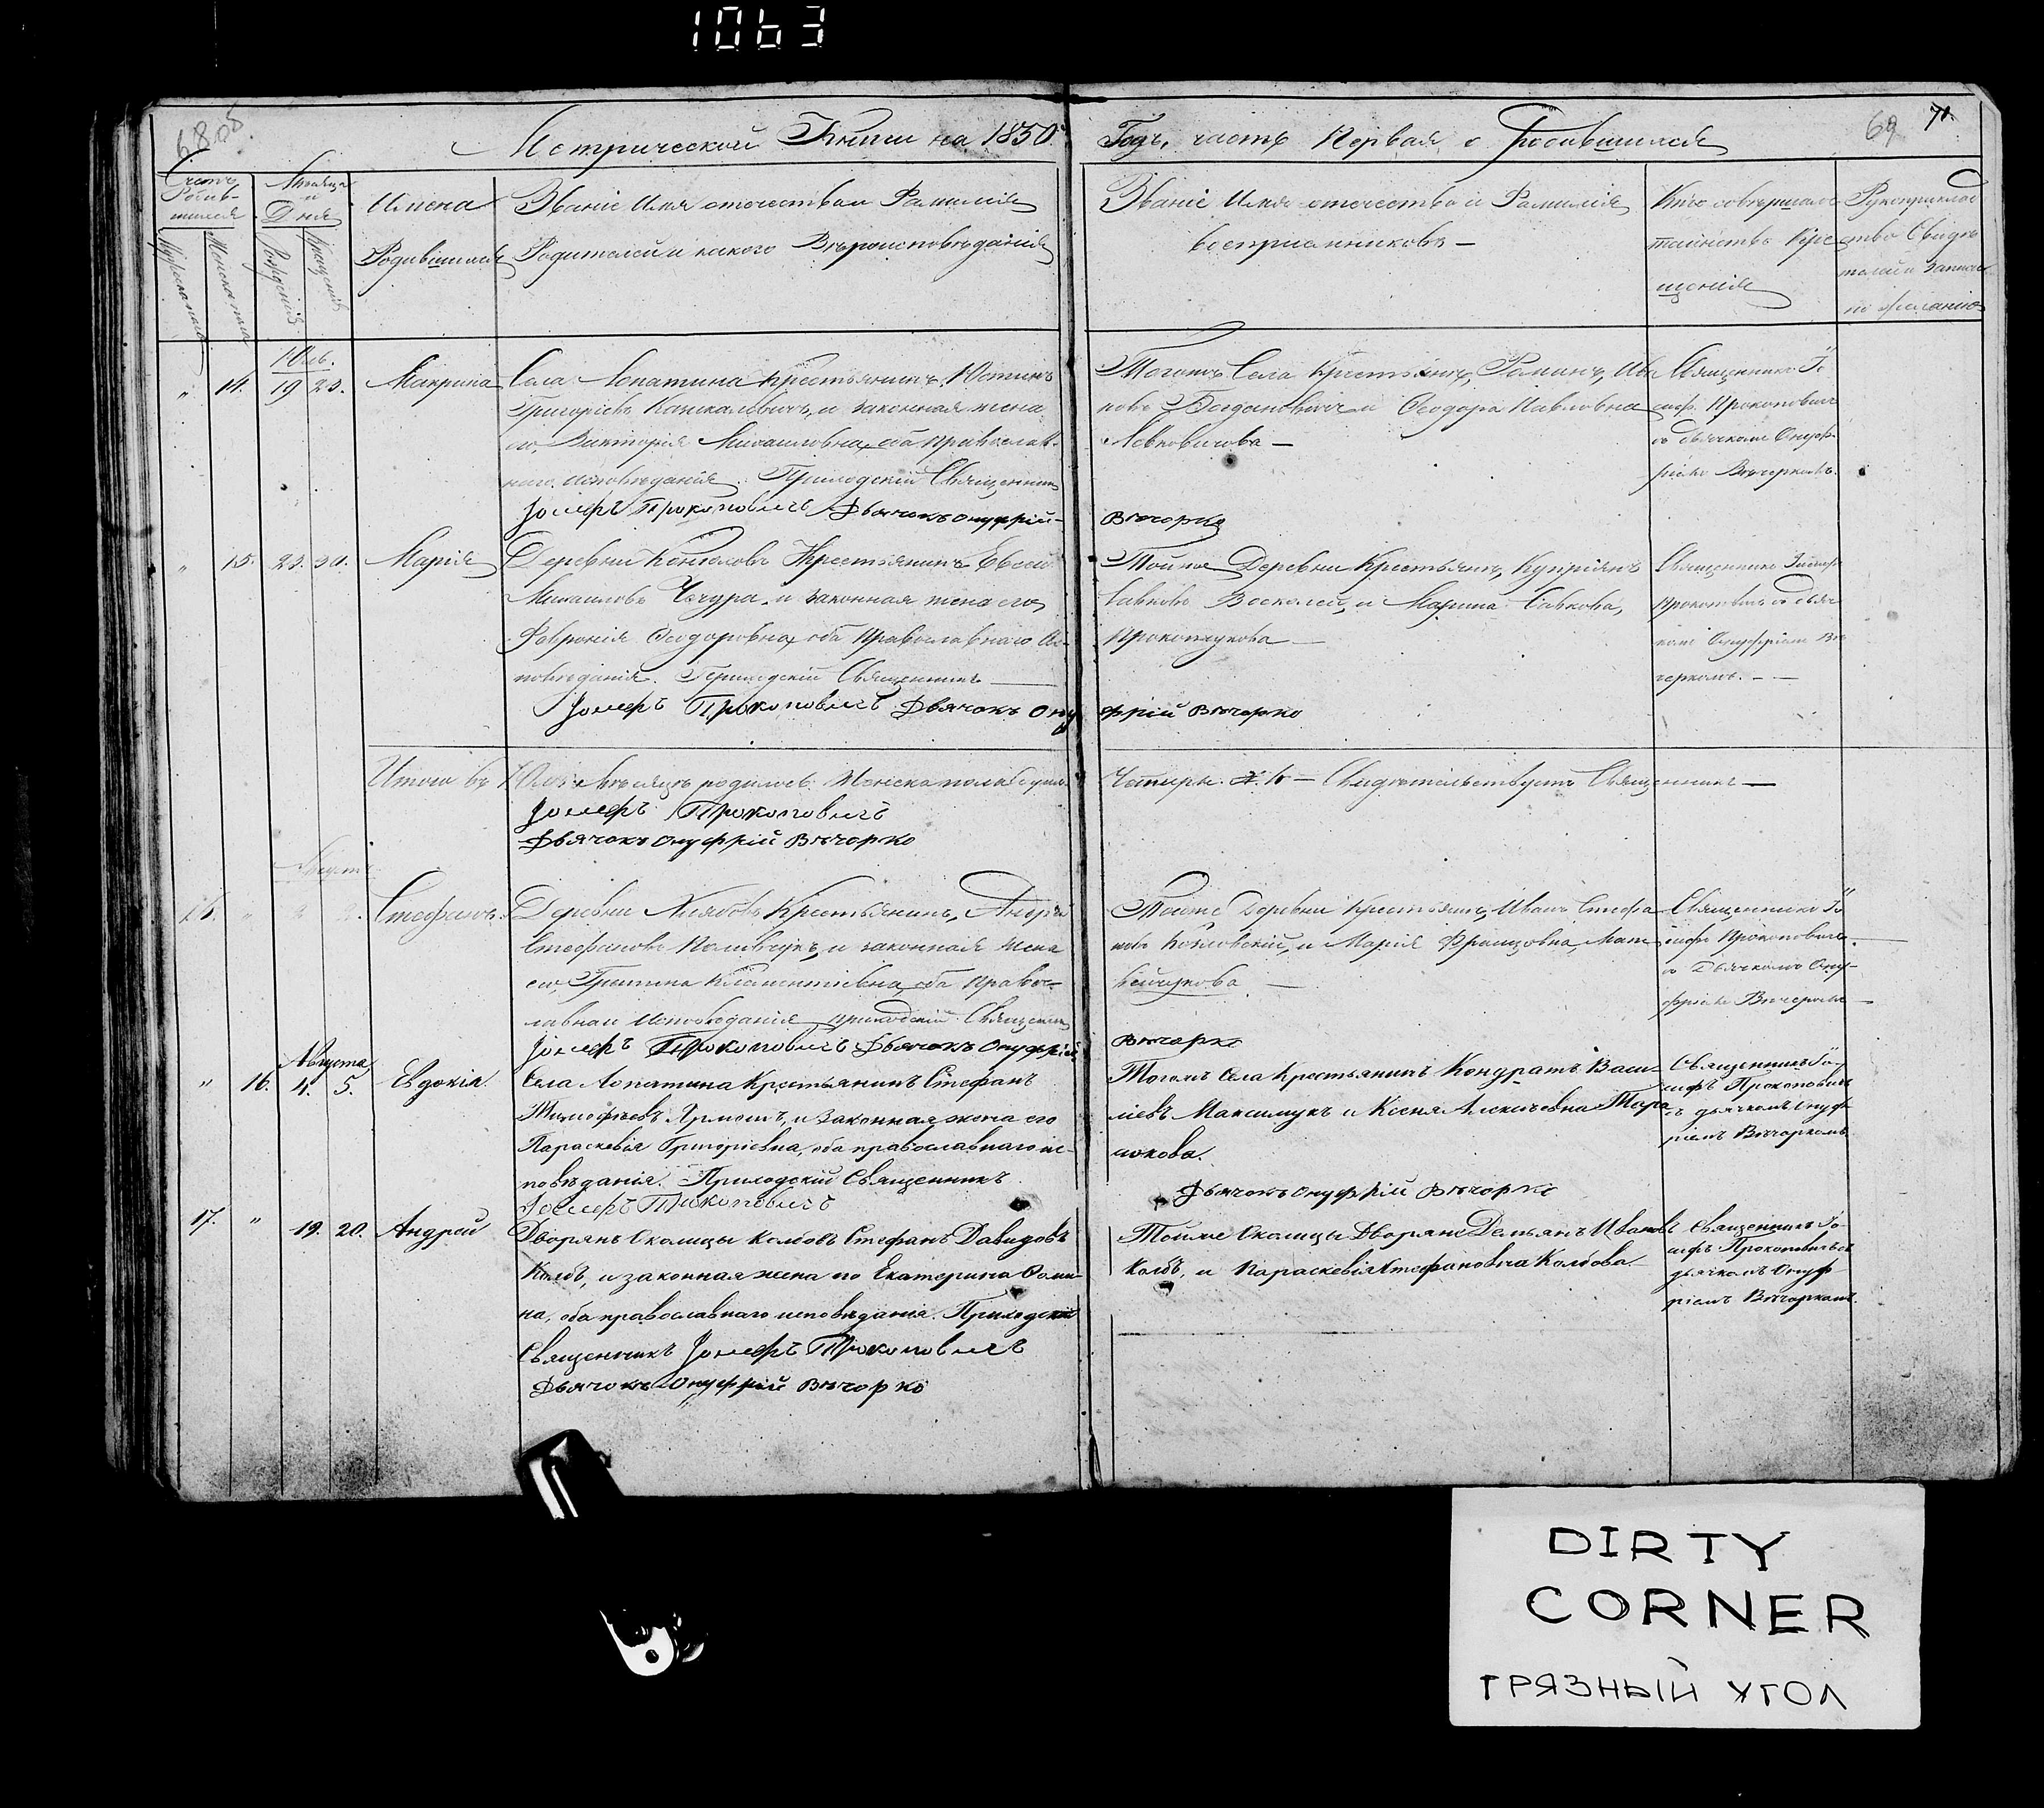 1063
68 об.
Метрической Книги на 1850.
Годъ, часть Первая о Родившихся
69 70.
Счетъ Родив-шихся
Мужеска пола
Женска пола
Месяцъ и Дня
Рожденія
Крещенія
Имена
Родившихся
Званіе Имя отечество и Фамилія
Родителей и какого Вѣроисповѣданія
Званіе Имя отечество и Фамилія
воспріемниковъ —
Кто совершалъ
таинство Кре-
щенія
Рукоприклад
ство Свидѣ
телей записи
по желанію
Юль.
" 14. 19 23. Макрина
Села Лопатина Крестьянинъ, Юстинъ
Григоріевъ, и законная жена
его, Виктория Михаиловна, оба Православ-
наго исповѣданія. Приходскій Священникъ
Іосифъ Прокоповичъ Дьячокъ Онуфрій
Тогожъ Села Крестьянинъ, Романъ, Ива
новъ Богдановичъ и Феодора Павловна
Левковичова —
Вечорко
Священникъ Іо
сифъ Прокоповичъ
съ дьячкомъ Онуф
ріемъ Вечоркомъ.
" 15. 23. 30. Марія
Деревни Крестьянинъ Евсей
Михаиловъ и законная жена его
Февронія Феодоровна, оба Православнаго Ис-
повѣданія. Приходскій Священникъ —
Іосифъ Прокоповичъ Дьячокъ Ону
Тойже Деревни Крестьянинъ, Купріянъ
и Марина Савкова,
Прокопчукова —
фрій Вечорко
Священникъ Іосифъ
Прокоповичъ съ дьяч
комъ Онуфріемъ Ве
чоркомъ. — —
Итого въ Юлѣ Мѣсяцѣ родилось: Женска пола
Четыри. № 4 — Свидѣтельствуетъ Священникъ —
Іосифъ Прокоповичъ
Дьячокъ Онуфрій Вечорко
Августъ
16. " 2. Стефанъ.
Деревни Крестьянинъ, Андрей
Стефановъ и законная жена
его, Климентіевна, оба Правос-
лавнаго Исповѣданія приходскій Священникъ
Іосифъ Прокоповичъ Дьячокъ Онуфрій
Тойже Деревни Крестьянинъ, Иванъ Стефа
новъ Козловскій, и Марія Францовна, Мат
вейчукова —
Вечорко
Священникъ Іо
сифъ Прокоповичъ
съ Дьячкомъ Ону-
фріемъ Вечоркомъ
Августа
" 16. 4. 5. Евдокія.
Села Лопатина Крестьянинъ Стефанъ
Тимофѣевъ Ярмошъ, и законная жена его
Параскевія Григоріевна, оба православнаго ис-
повѣданія. Приходскій Священникъ
Іосифъ Прокоповичъ
Тогожъ Села Крестьянинъ Кондратъ Васи-
ліевъ Максимукъ и Ксеня Алексіевна Тара-
сюкова.
Дьячокъ Онуфрій Вечорко
Священникъ Іо-
сифъ Прокоповичъ
съ дьячкомъ Онуф
ріемъ Вечоркомъ
17. " 19. 20. Андрей
Дворянъ Околицы Колбовъ Стефанъ Давидовъ
Колбъ, и законная жена его Екатерина Фоми-
на, оба православнаго исповѣданія. Приходскій
Священникъ Іосифъ Прокоповичъ
Дьячокъ Онуфрій Вечорко
Тойже Околицы Дворяне Демьянъ Ивановъ
Колбъ, и Параскевія Стефановна Колбова
Священникъ Іо-
сифъ Прокоповичъ съ
дьячкомъ Онуф
ріемъ Вечоркомъ.
DIRTY
CORNER
ГРЯЗНЫЙ УГОЛ